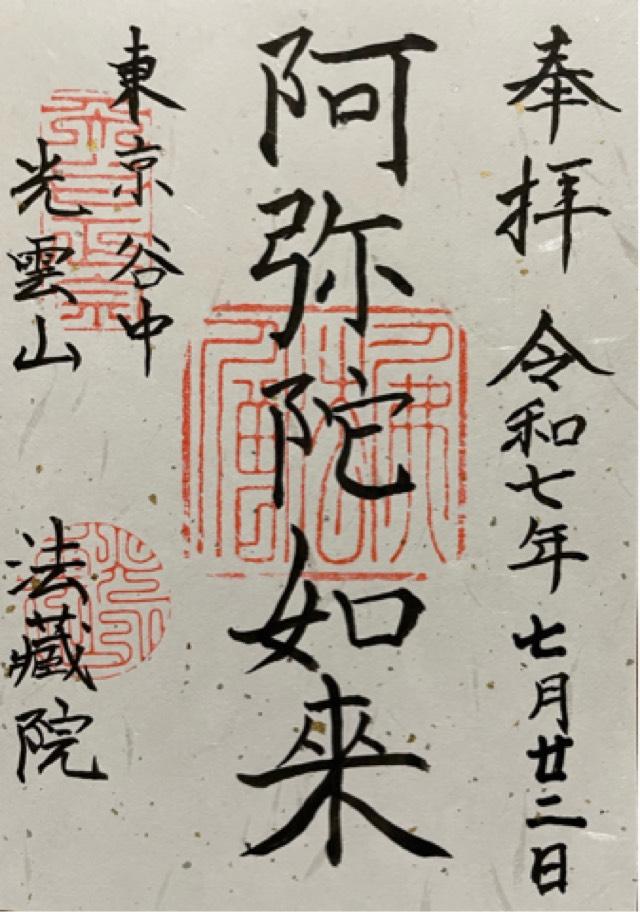 奉拝 令和七年七月廿二日
阿弥陀如來
東京谷中
光雲山 法藏院